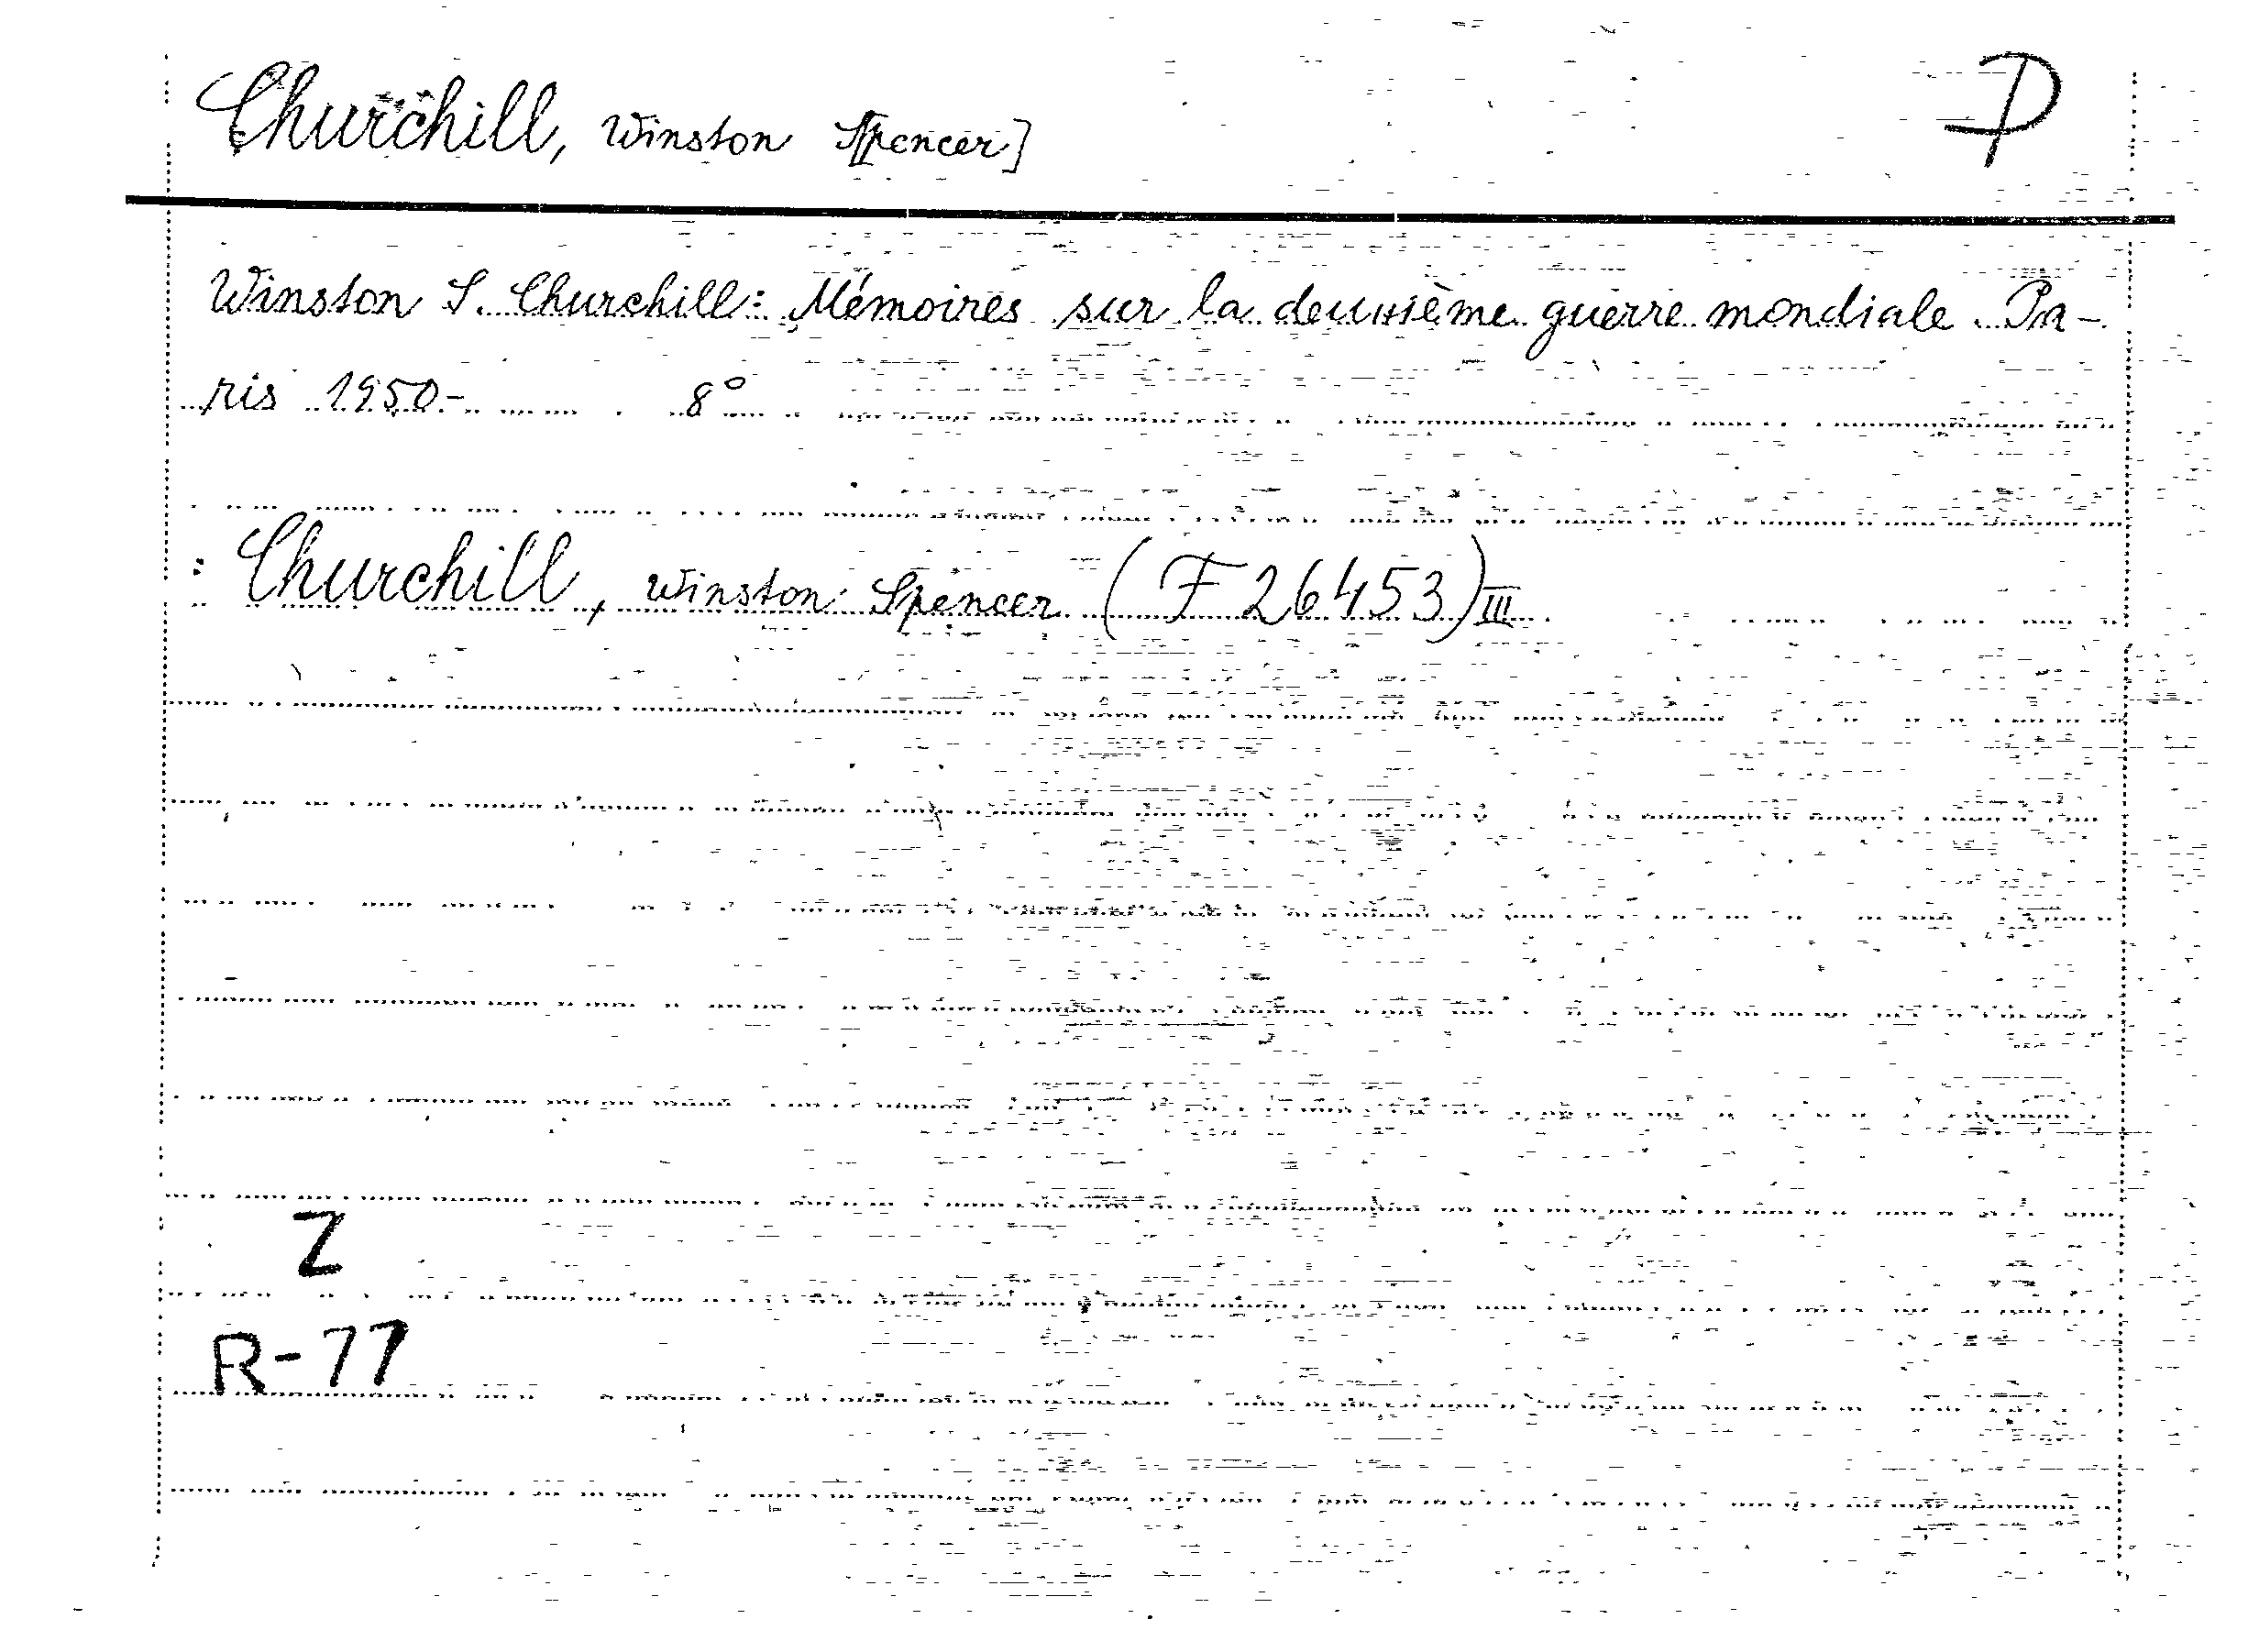 Churchill, Winston S[pencer]
D
Winston S. Churchill: Mémoires sur la deuxième guerre mondiale. Pa-
ris 1950- . 8°
: Churchill, Winston Spencer (F 26453) III.
Z
R-77